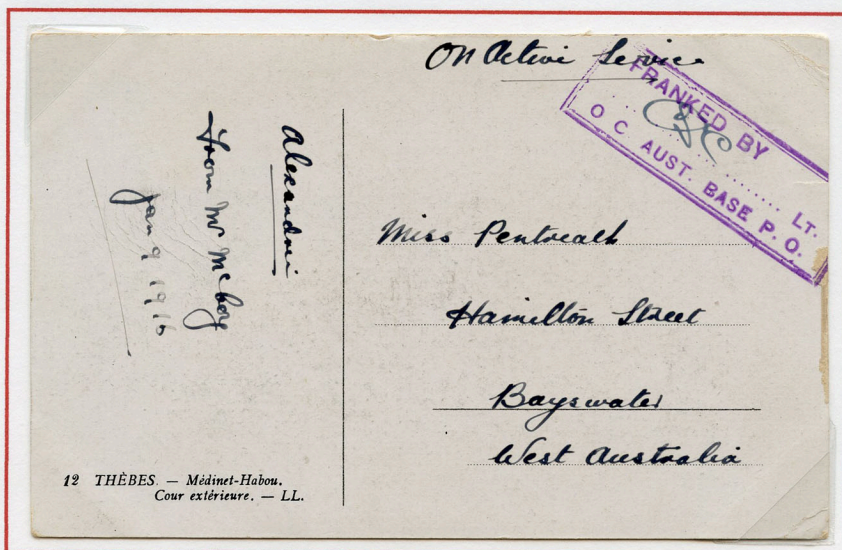 On Active Service
FRANKED BY
LT.
O C AUST. BASE P. O.
Alexandria
From Mr
Jan 9 1916
Miss Pentreath
Hamilton Street
Bayswater
West Australia
12 THÈBES. — Médinet-Habou.
Cour extérieure. — LL.